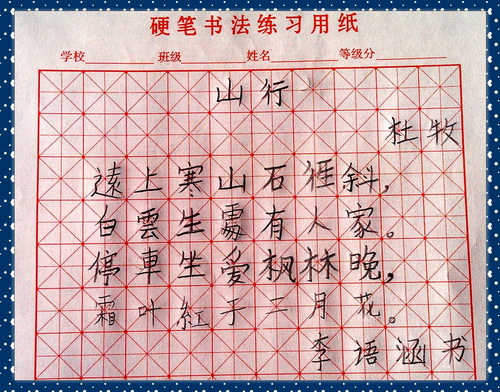 硬笔书法练习用纸
学校 班级 姓名 等级分
山行
杜牧
遠上寒山石徑斜，
白雲生處有人家。
停車坐愛枫林晚，
霜叶紅于二月花。
李语涵书